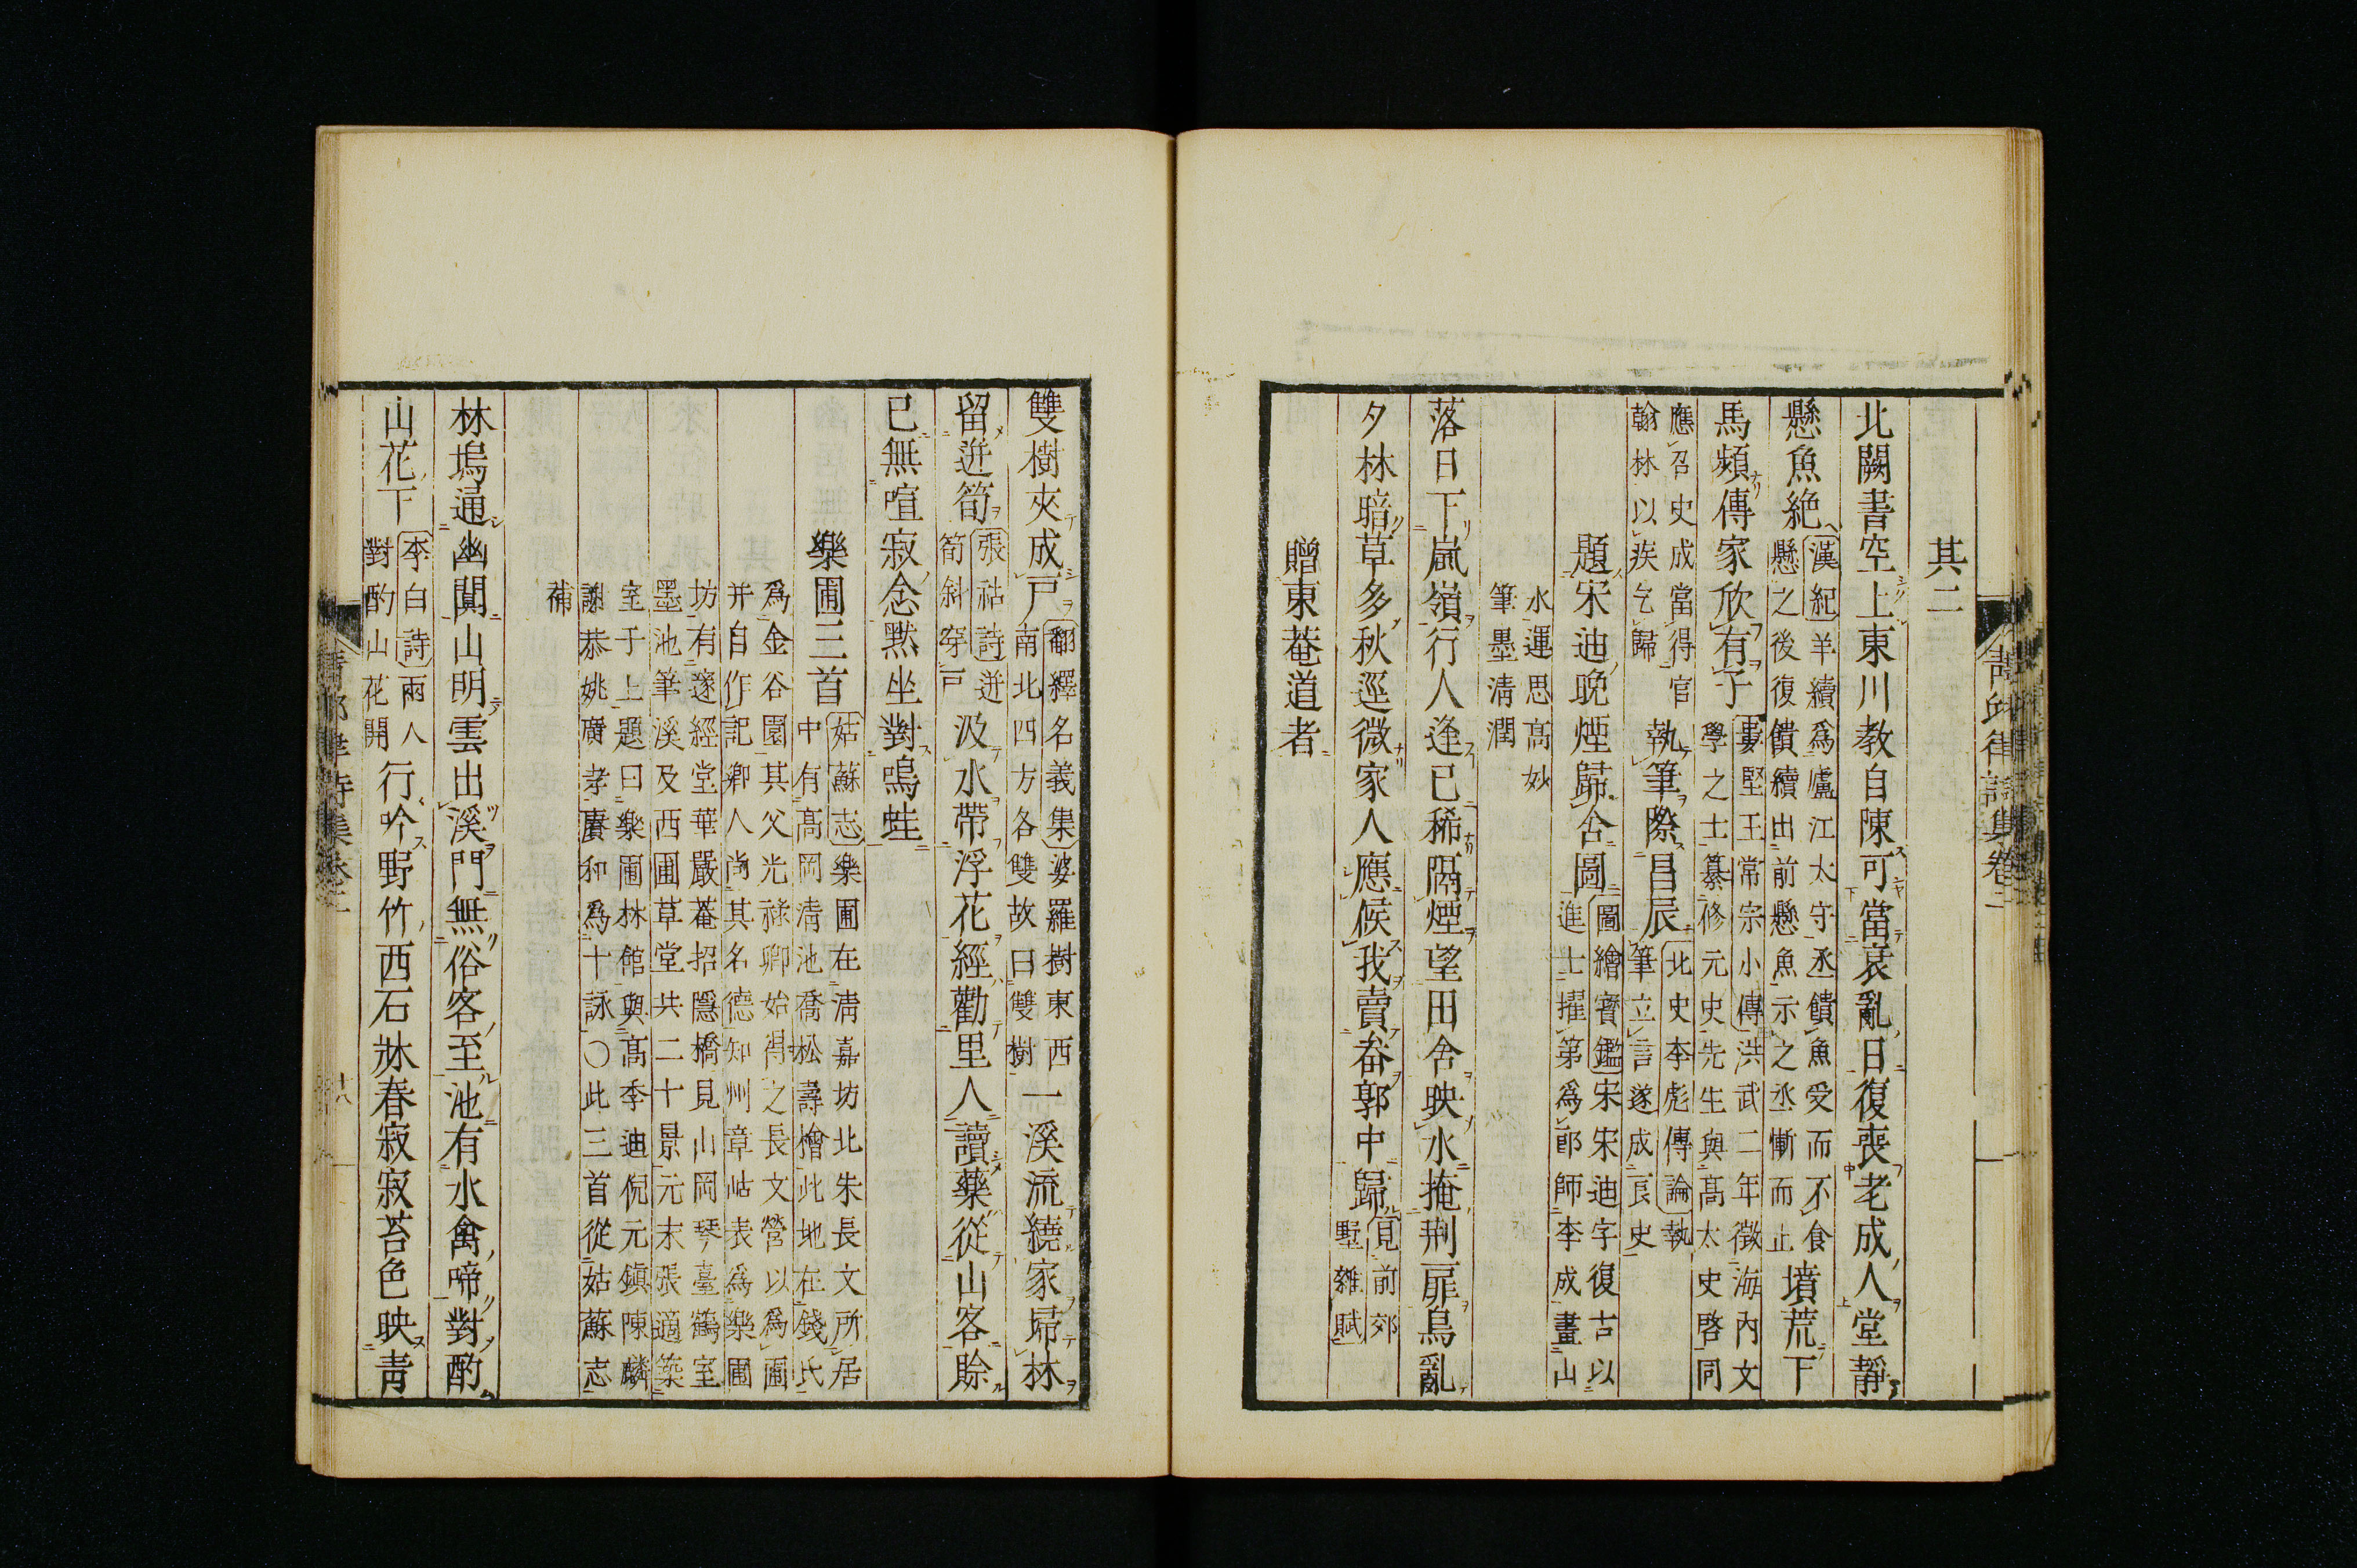 其二
北闕書空上東川教自陳可當哀亂日復喪老成人堂靜
懸魚絶漢紀羊續爲盧江太守丞饋魚受而不食
懸之後復饋續出前懸魚示之丞慚而止墳荒下
馬頻傳家欣有子婁堅王常宗小傳洪武二年徵海内文
學之士纂修元史先生與高太史啓同
應召史成當得官
翰林以疾乞歸執筆際昌辰北史李彪傳論執
筆立言遂成良史
題宋迪晩煙歸舍圖圖繪寶鑑宋宋迪字復古以
進士擢第爲郎師李成畫山
水運思高妙
筆墨清潤
落日下嵐嶺行人逢已稀隔煙望田舍映水掩荆扉鳥亂
夕林暗草多秋逕微家人應候我賣畚郭中歸見前郊
墅雜賦
贈東菴道者
雙樹夾成戸翻繹名義集婆羅樹東西
南北四方各雙故曰雙樹一溪流繞家歸林
留迸筍張祜詩迸
筍斜穿戸汲水帶浮花經勸里人讀藥從山客賖
已無喧寂念黙坐對鳴蛙
樂圃三首姑蘇志樂圃在清嘉坊北朱長文所居
中有高岡清池喬松壽檜此地在錢氏
爲金谷園其父光祿卿始得之長文營以爲圃
并自作記郷人尚其名德知州章岵表爲樂圃
坊有邃經堂華嚴菴招隱橋見山岡琴臺鶴室
墨池筆溪及西圃草堂共二十景元末張適築
室于上題曰樂圃林館與高季迪倪元鎭陳麟
謝恭姚廣孝賡和爲十詠○此三首從姑蘇志
補
林塢通幽闃山明雲出溪門無俗客至池有水禽啼對酌
山花下李白詩兩人
對酌山花開行吟野竹西石牀春寂寂苔色映青
青邱律詩集卷二